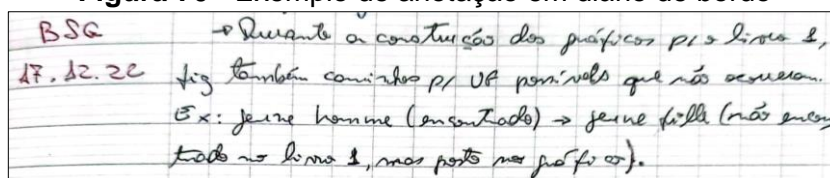 BSG → Durante a construção dos gráficos p/ o livro 1,
17.12.22 fiz também caminhos p/ UF possíveis que não ocorreram.
Ex: jeune homme (encontrado) → jeune fille (não encon
trado no livro 1, mas posto nos gráficos).